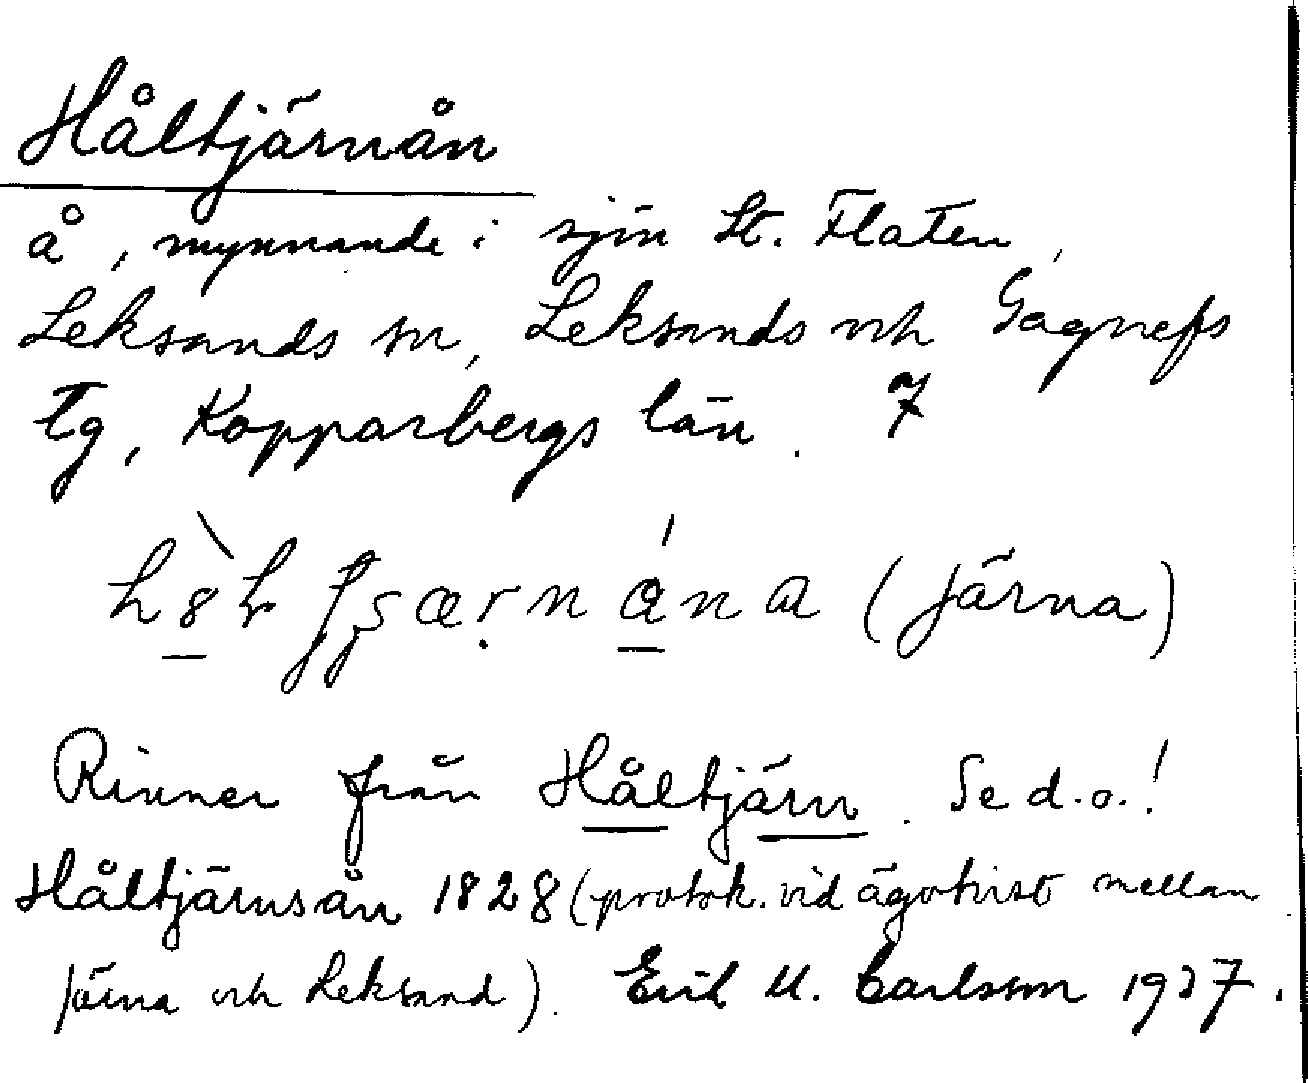 Håltjärnån
å, mynnande i sjön St. Flaten,
Leksands sn, Leksands och Gagnefs
tg, Kopparbergs län. 7
(Järna)
Rinner från Håltjärn. Se d.o.!
Håltjärnsån 1828 (protok. vid ägotvist mellan
Järna och Leksand). Erik M. Carlsson 1937.